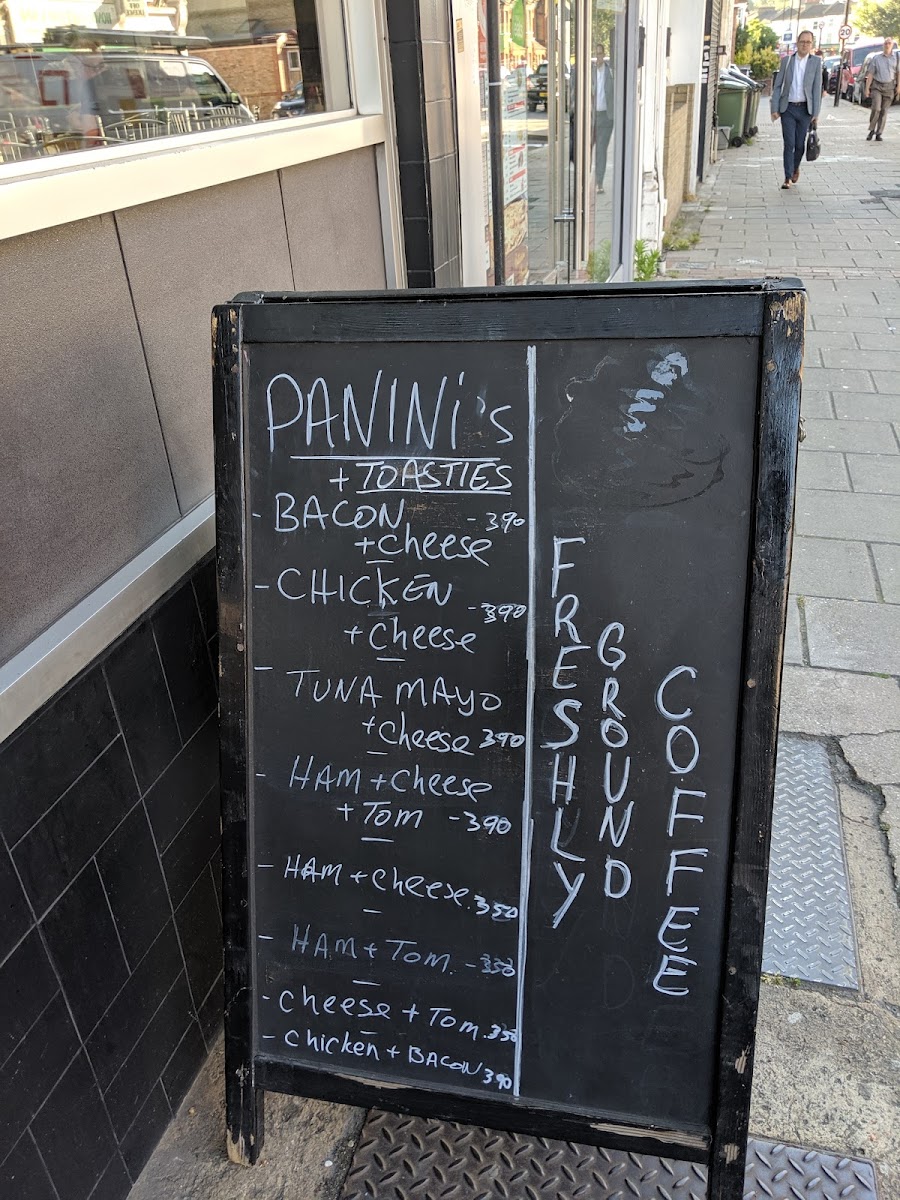 PANINI's
+ TOASTIES
- BACON - 390
+ cheese
- CHICKEN - 390
+ cheese
- TUNA MAYO
+ cheese 390
- HAM + cheese
+ TOM - 390
- HAM + cheese. 350
- HAM + TOM. - 350
- cheese + TOM. 350
- chicken + BACON 390
FRESHLY
GROUND
COFFEE
20